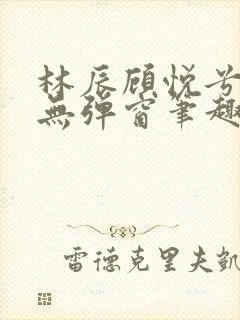 林辰顾悦兮
無彈窗筆趣
雷德克里夫凱